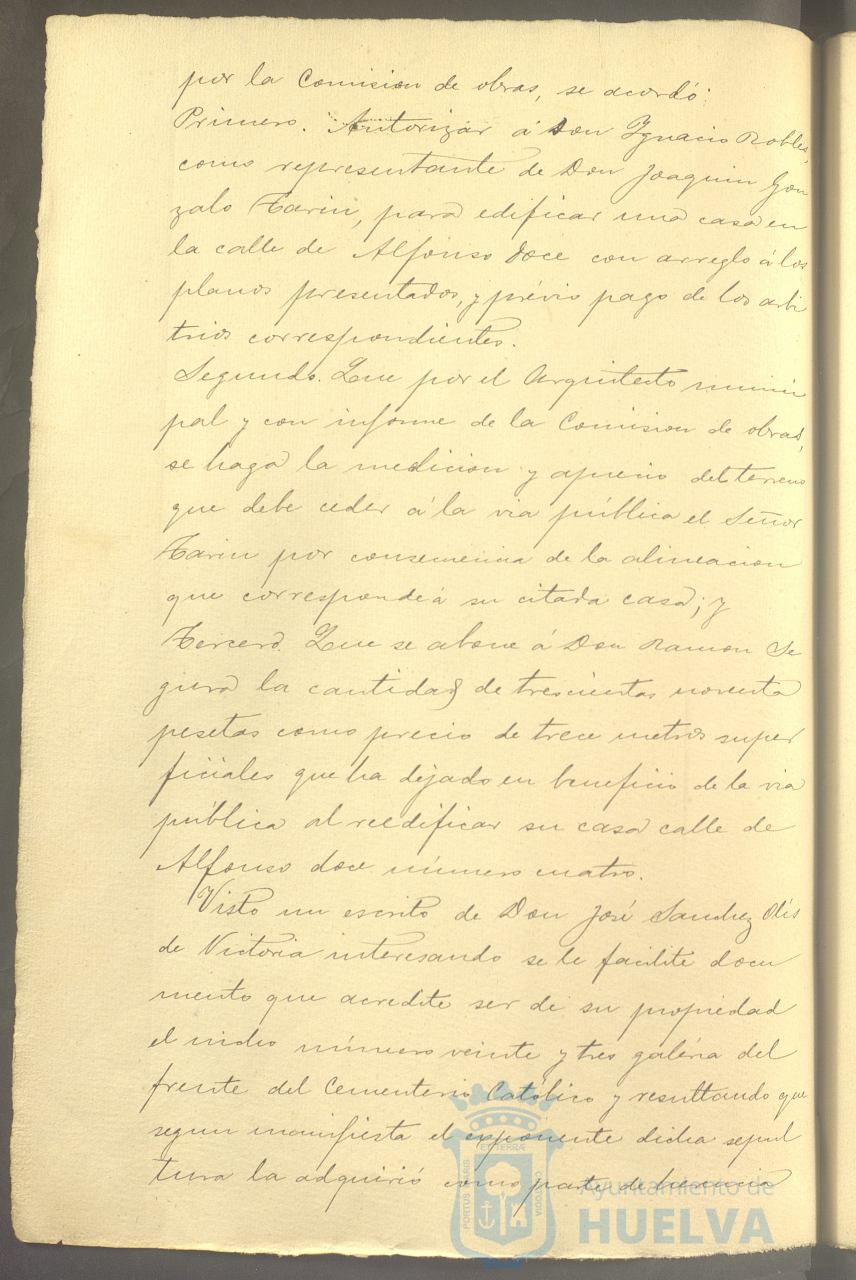 por la Comision de obras, se acordó:
Primero. Autorizar á Don Ygnacio Robles,
como representante de Don Joaquin Gon
zalo Tarin, para edificar una casa en
la calle de Alfonso doce con arreglo á los
planos presentados, y prévio pago de los arbi
trios correspondientes.
Segundo. Que por el Arquitecto munici
pal y con informe de la Comision de obras,
se haga la medicion y aprecio del terreno
que debe ceder á la via pública el Señor
Tarin por consecuencia de la alineacion
que corresponde á su citada casa; y
Tercero. Que se abone á Don Ramon Se
gura la cantidad de trescientas noventa
pesetas como precio de trece metros super
ficiales que ha dejado en beneficio de la via
pública al reedificar su casa calle de
Alfonso doce número cuatro.
Visto un escrito de Don José Sanchez
de Victoria interesando se le facilite docu
mento que acredite ser de su propiedad
el nicho número veinte y tres galéria del
frente del Cementerio Católico y resultando que
segun manifiesta el exponente dicha sepul
tura la adquirió como parte de herencia
PORTUS MARIS
ET TERRÆ
CUSTODIA
Ayuntamiento de
HUELVA